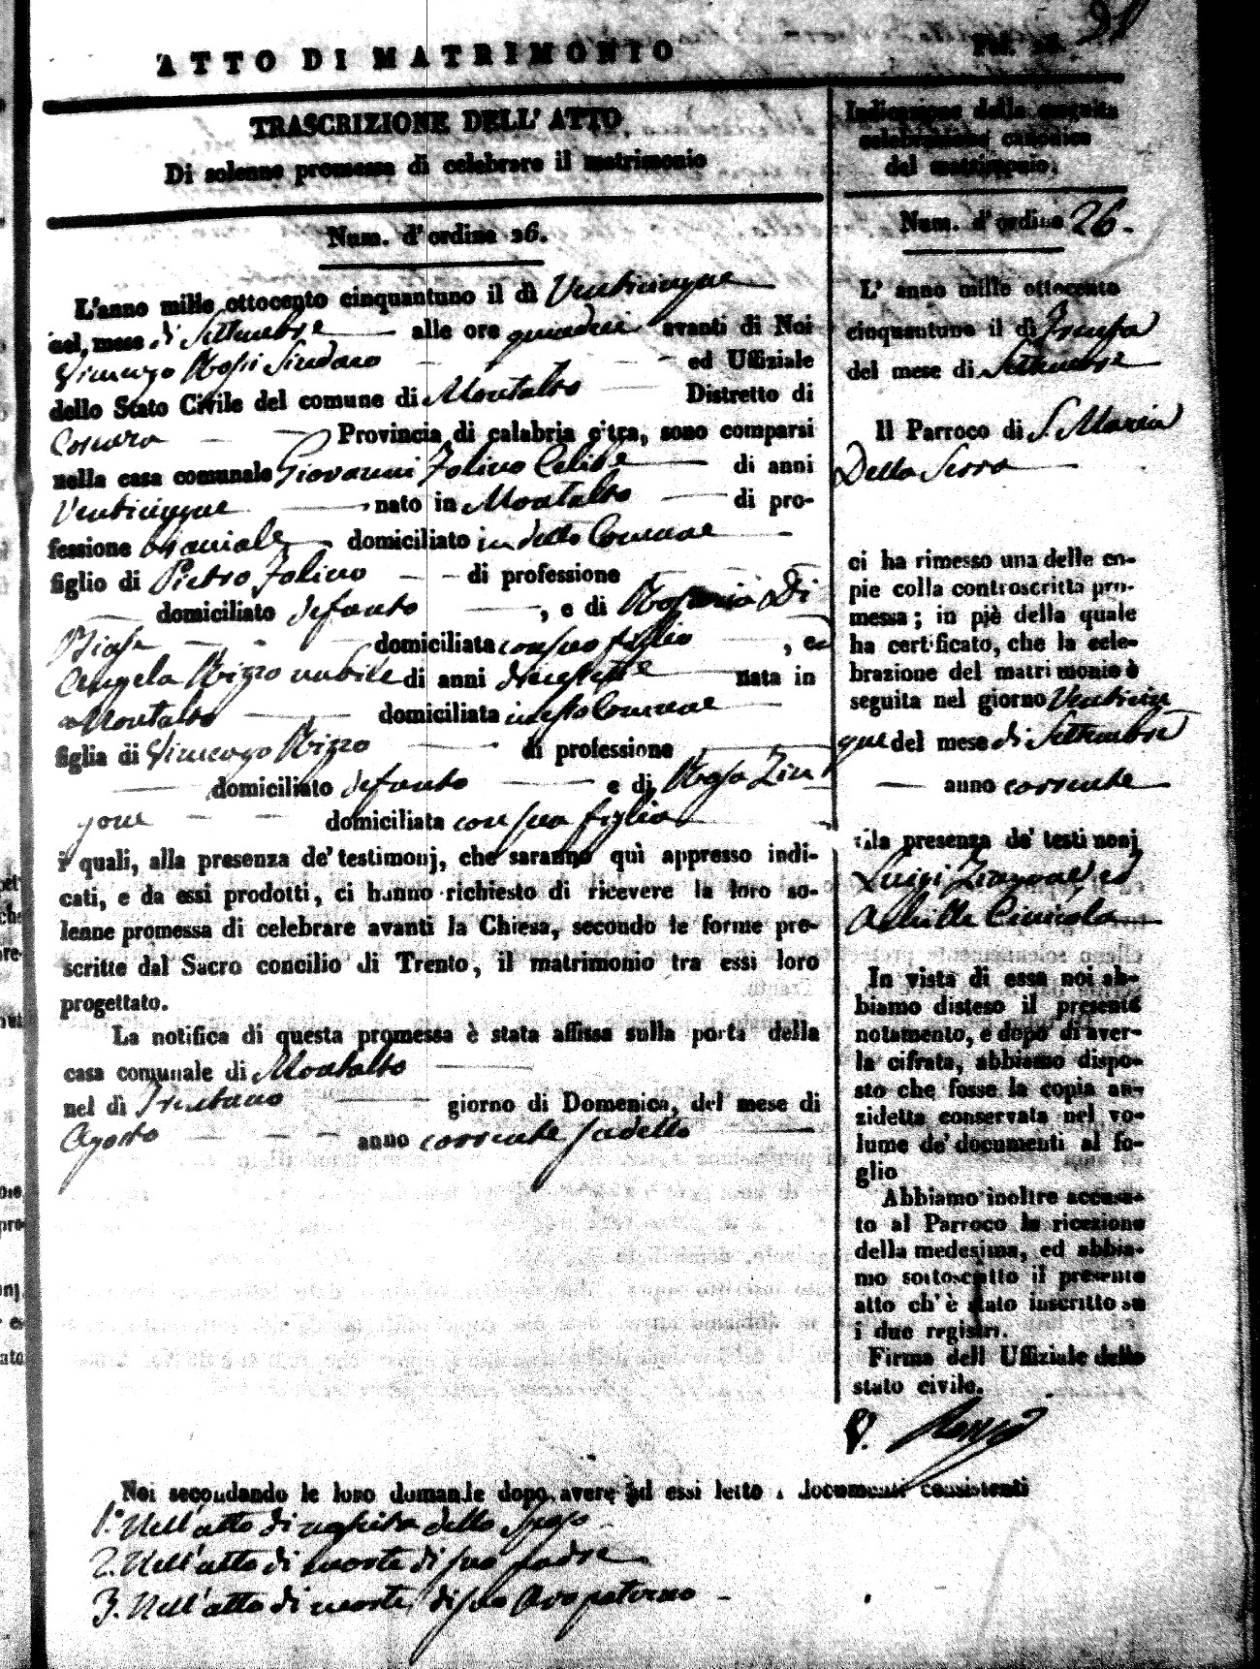 91
ATTO DI MATRIMONIO
TRASCRIZIONE DELL' ATTO
Di solenne promessa di celebrare il matrimonio
Num. d'ordine 26.
L'anno mille ottocento cinquantuno il dì Venticinque
nel mese di Settembre alle ore quindici avanti di Noi
Vincenzo Sindaco ed Uffiziale
dello Stato Civile del comune di Montalto Distretto di
Cosenza Provincia di calabria citra, sono comparsi
nella casa comunale Giovanni Folino Celibe di anni
Venticinque nato in Montalto di pro-
fessione domiciliato in detto Comune
figlio di Pietro Folino di professione
domiciliato defunto , e di Rosaria Di
Biase domiciliata con suo figlio , ed
Angela Rizzo nubile di anni diecisette nata in
Montalto domiciliata in esso Comune
figlia di Vincenzo Rizzo di professione
domiciliato defunto e di Rosa Zin
gone domiciliata con sua figlia
i quali, alla presenza de' testimonj, che saranno qui appresso indi-
cati, e da essi prodotti, ci hanno richiesto di ricevere la loro so-
lenne promessa di celebrare avanti la Chiesa, secondo le forme pre-
scritte dal Sacro concilio di Trento, il matrimonio tra essi loro
progettato.
La notifica di questa promessa è stata affissa sulla porta della
casa comunale di Montalto
nel dì Trentuno giorno di Domenica, del mese di
Agosto anno corrente sudetto
Indicazione della seguita
celebrazione canonica
del matrimonio.
Num. d'ordine 26.
L' anno mille ottocento
cinquantuno il dì Trenta
del mese di Settembre
Il Parroco di S. Maria
Della Serra
ci ha rimesso una delle co-
pie colla controscritta pro-
messa; in piè della quale
ha certificato, che la cele-
brazione del matrimonio è
seguita nel giorno Venticin
que del mese di Settembre
anno corrente
alla presenza de' testimonj
Luigi ed
Achille
In vista di essa noi ab-
biamo disteso il presente
notamento, e dopo di aver-
la cifrata, abbiamo dispo-
sto che fosse la copia an-
zidetta conservata nel vo-
lume de' documenti al fo-
glio
Abbiamo inoltre accusa-
to al Parroco la ricezione
della medesima, ed abbia-
mo sottoscritto il presente
atto ch' è stato inscritto su
i due registri.
Firma dell Uffiziale dello
stato civile.
V.
Noi secondando le loro domande dopo avere ad essi letto i documenti consistenti
1.° Nell'atto di nascita dello Sposo
2. Nell'atto di morte di suo padre
3. Nell'atto di morte di suo Avo paterno